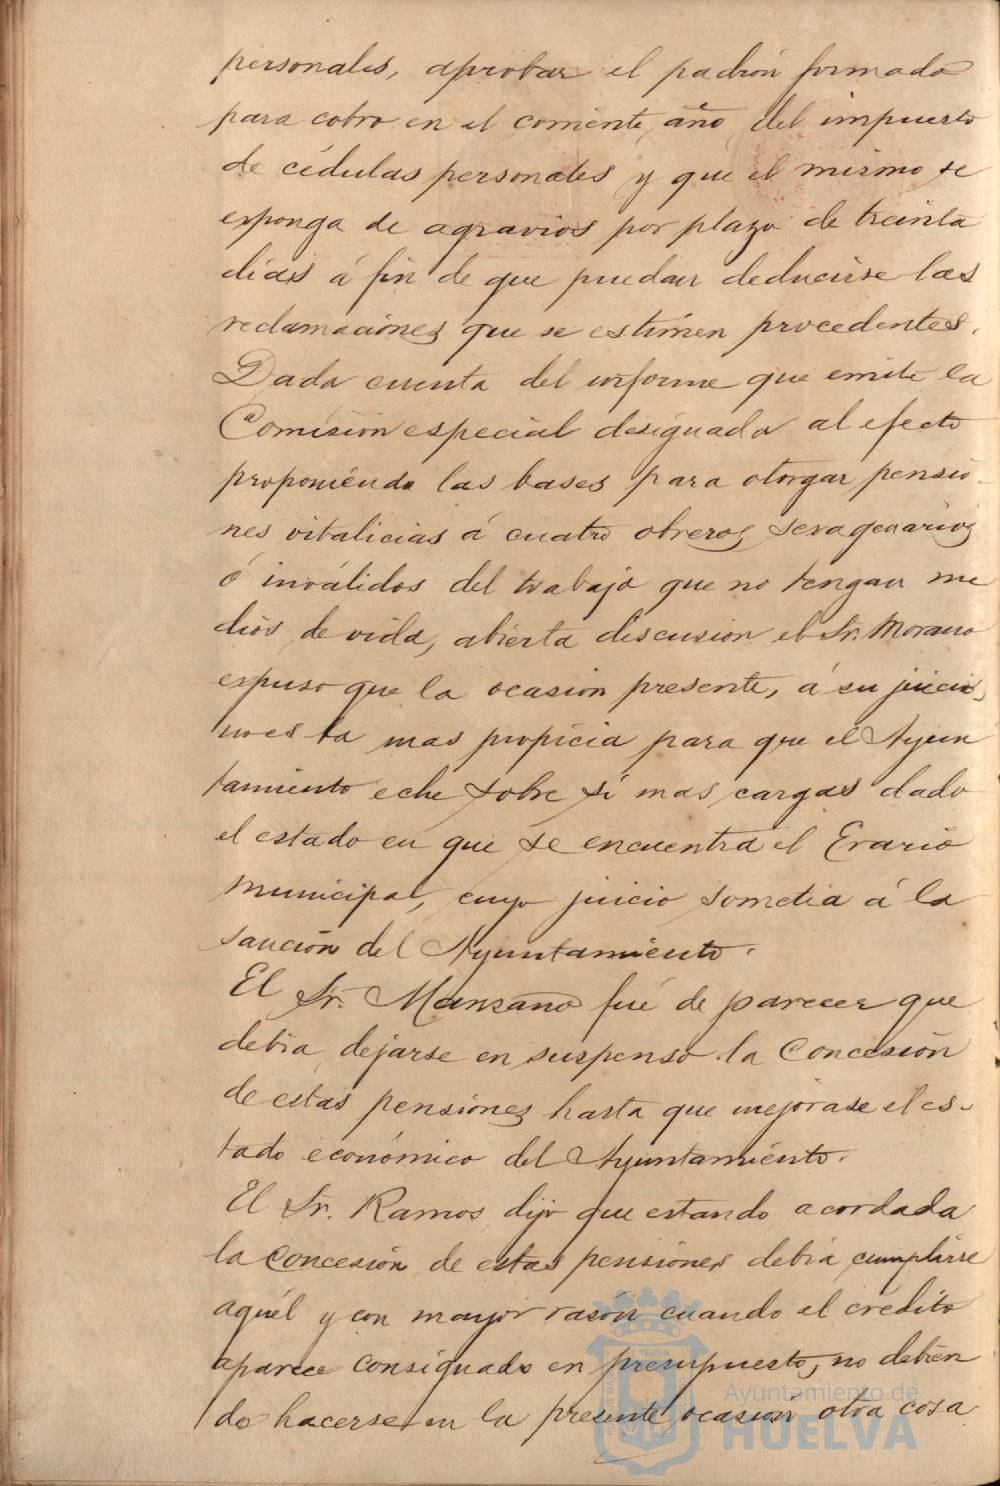 personales, aprobar el padrón formado
para cobro en el corriente año del impuesto
de cédulas personales y que el mismo se
esponga de agravios por plazo de treinta
días á fin de que puedan deducirse las
reclamaciones que se estimen procedentes.
Dada cuenta del informe que emite la
Comisión especial designada al efecto
proponiendo las bases para otorgar pensio-
nes vitalicias á cuatro obreros sexagenarios
ó inválidos del trabajo que no tengan me
dios de vida, abierta discusion el Sr. Morano
espuso que la ocasion presente, á su juicio,
no es la mas propicia para que el Ayun
tamiento eche sobre sí mas cargas dado
el estado en que se encuentra el Erario
municipal, cuyo juicio sometia á la
sanción del Ayuntamiento.
El Sr. Manzano fué de parecer que
debia dejarse en suspenso la Concesión
de estas pensiones hasta que mejorase el es-
tado económico del Ayuntamiento.
El Sr. Ramos dijo que estando acordada
la Concesión de estas pensiones debia cumplirse
aquél y con mayor razón cuando el crédito
aparece consignado en presupuesto, no debien
do hacerse en la presente ocasión otra cosa
Ayuntamiento de
HUELVA